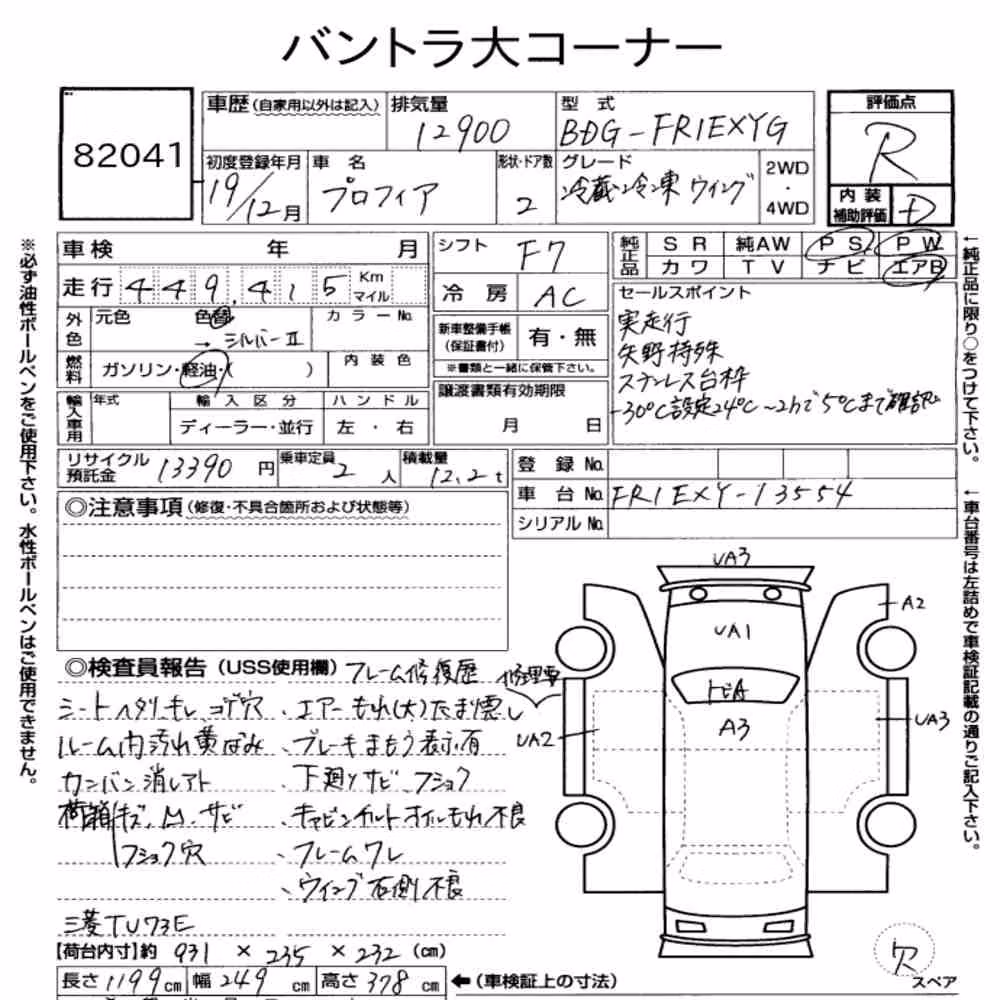 バントラ大コーナー
82041
車歴(自家用以外は記入) 排気量 12900 型式 BDG-FR1EXYG
評価点 R
初度登録年月 19/12月 車名 プロフィア 形状・ドア数 2 グレード 冷蔵冷凍ウイング 2WD・4WD
内装補助評価 D
車検 年 月 シフト F7
純正品 SR 純AW PS PW
カワ TV ナビ エアB
走行 449,415 Km マイル 冷房 AC
セールスポイント
実走行
矢野特殊
ステンレス台枠
-30℃設定24℃〜2hで5℃まで確認
外色 元色 色替 → シルバーⅡ カラーNo.
新車整備手帳(保証書付) 有・無
※書類と一緒に保管下さい。
燃料 ガソリン・軽油・( ) 内装色
譲渡書類有効期限 月 日
輸入車用 年式 輸入区分 ハンドル
ディーラー・並行 左・右
リサイクル預託金 13390円 乗車定員 2人 積載量 12.2t
登録No.
車台No. FR1EXY-13554
シリアルNo.
◎注意事項(修復・不具合箇所および状態等)
◎検査員報告(USS使用欄) フレーム修復歴 修理要
シートヘタリ、キレ、コゲ穴、エアーもれ(大)たまり悪し
ルーム内汚れ黄ばみ、ブレーキまもう表示有
カンバン消しアト 下廻りサビ、フショク
荷箱キズ、凹、サビ、キャビンチルトオイルもれ不良
フショク穴、フレームワレ
、ウイング右側不良
三菱TU73E
【荷台内寸】約 931 × 235 × 232 (cm)
長さ 1199cm 幅 249cm 高さ 378cm ←(車検証上の寸法)
UA3
A2
UA1
トビA
A3
UA2
UA3
穴
スペア
※必ず油性ボールペンをご使用下さい。水性ボールペンはご使用できません。
←純正品に限り○をつけて下さい。
←車台番号は左詰めで車検証記載の通りご記入下さい。